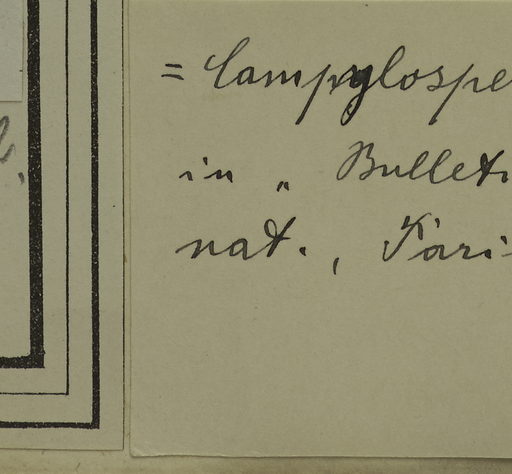 = Campylospe
in „ Bulleti
nat., Pari